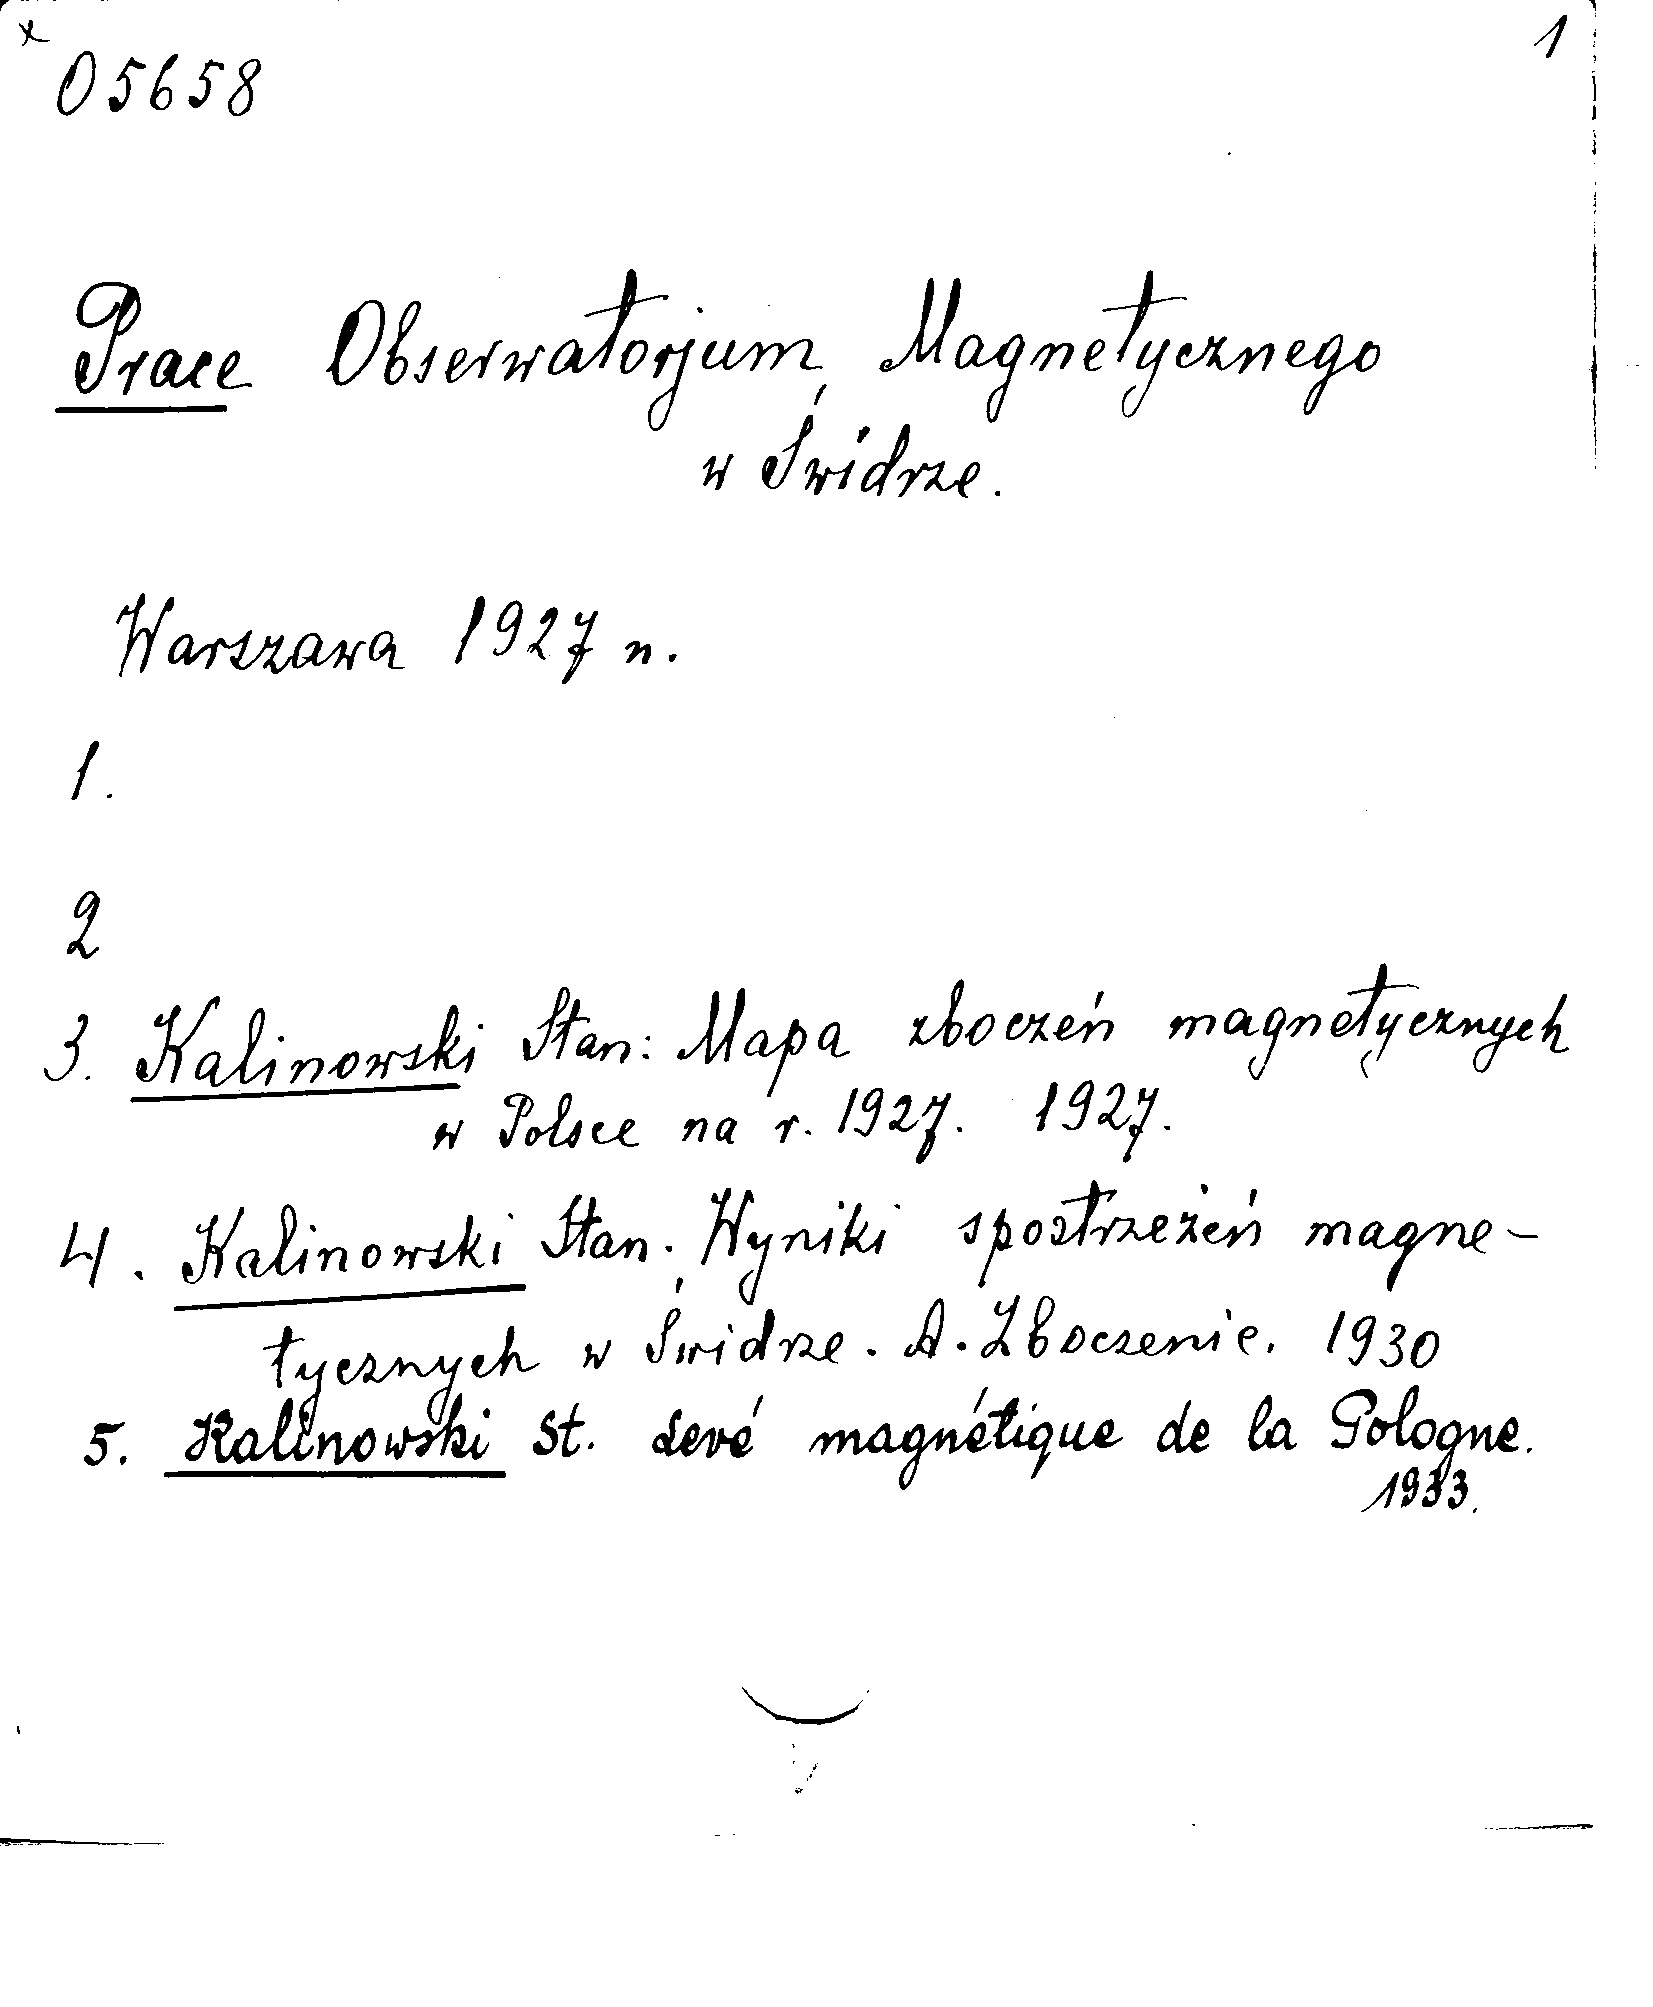 x 1
05658
Prace Obserwatorjum Magnetycznego
w Świdrze.
Warszawa 1927 n.
1.
2
3. Kalinowski Stan: Mapa zboczeń magnetycznych
w Polsce na r. 1927. 1927.
4. Kalinowski Stan. Wyniki spostrzeżeń magne-
tycznych w Świdrze. A. Zboczenie. 1930
5. Kalinowski St. Levé magnétique de la Pologne.
1933.